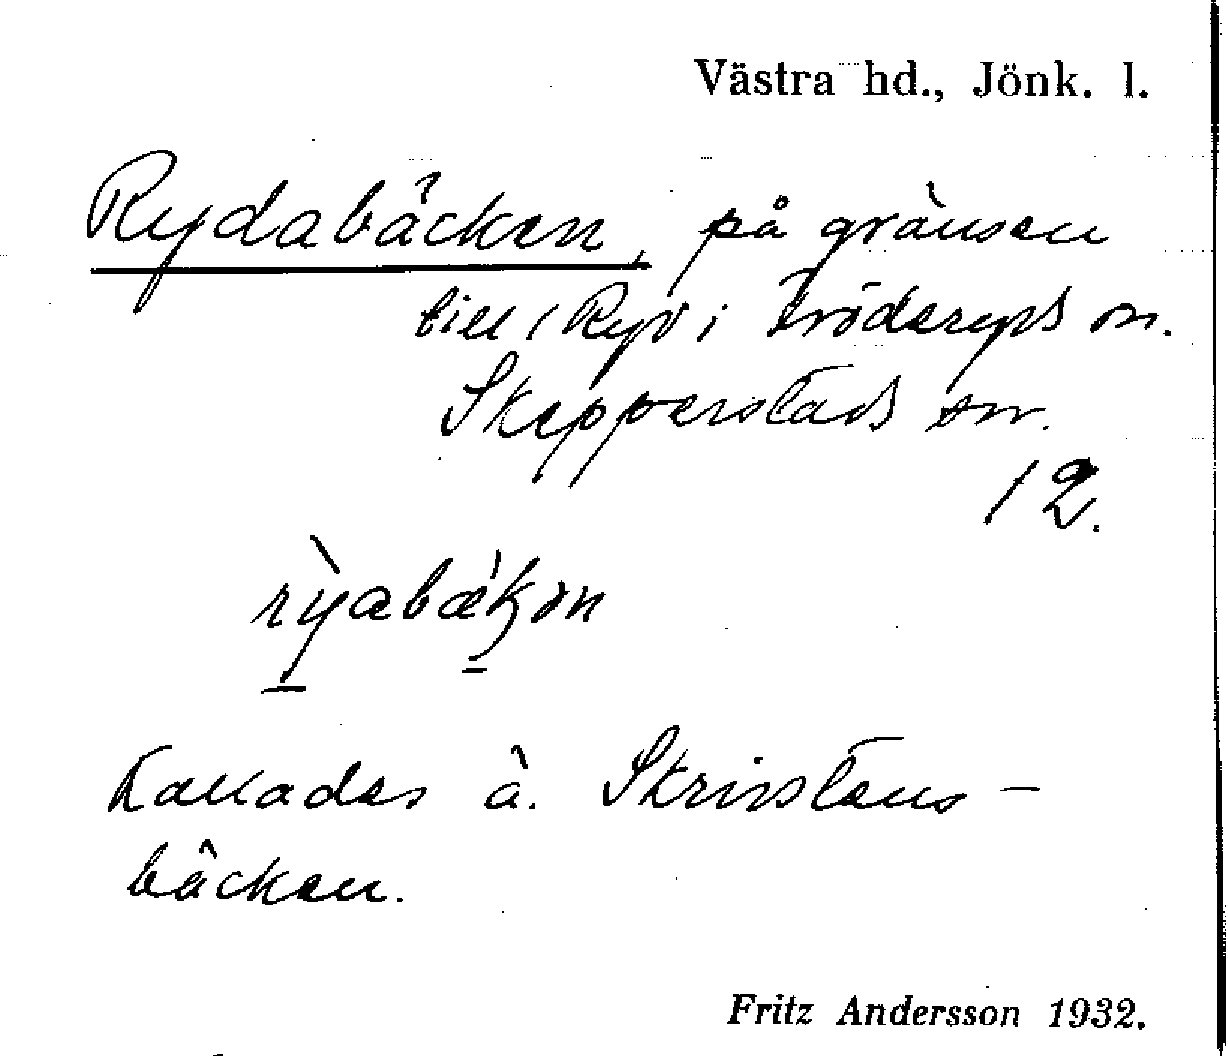 Västra hd., Jönk. l.
Rydabäcken, på gränsen
till / Ryd i Bröderyds sn.
Skepperstads sn.
12.
rỳabækən
Kallades ä. Skrivstens-
bäcken.
Fritz Andersson 1932.